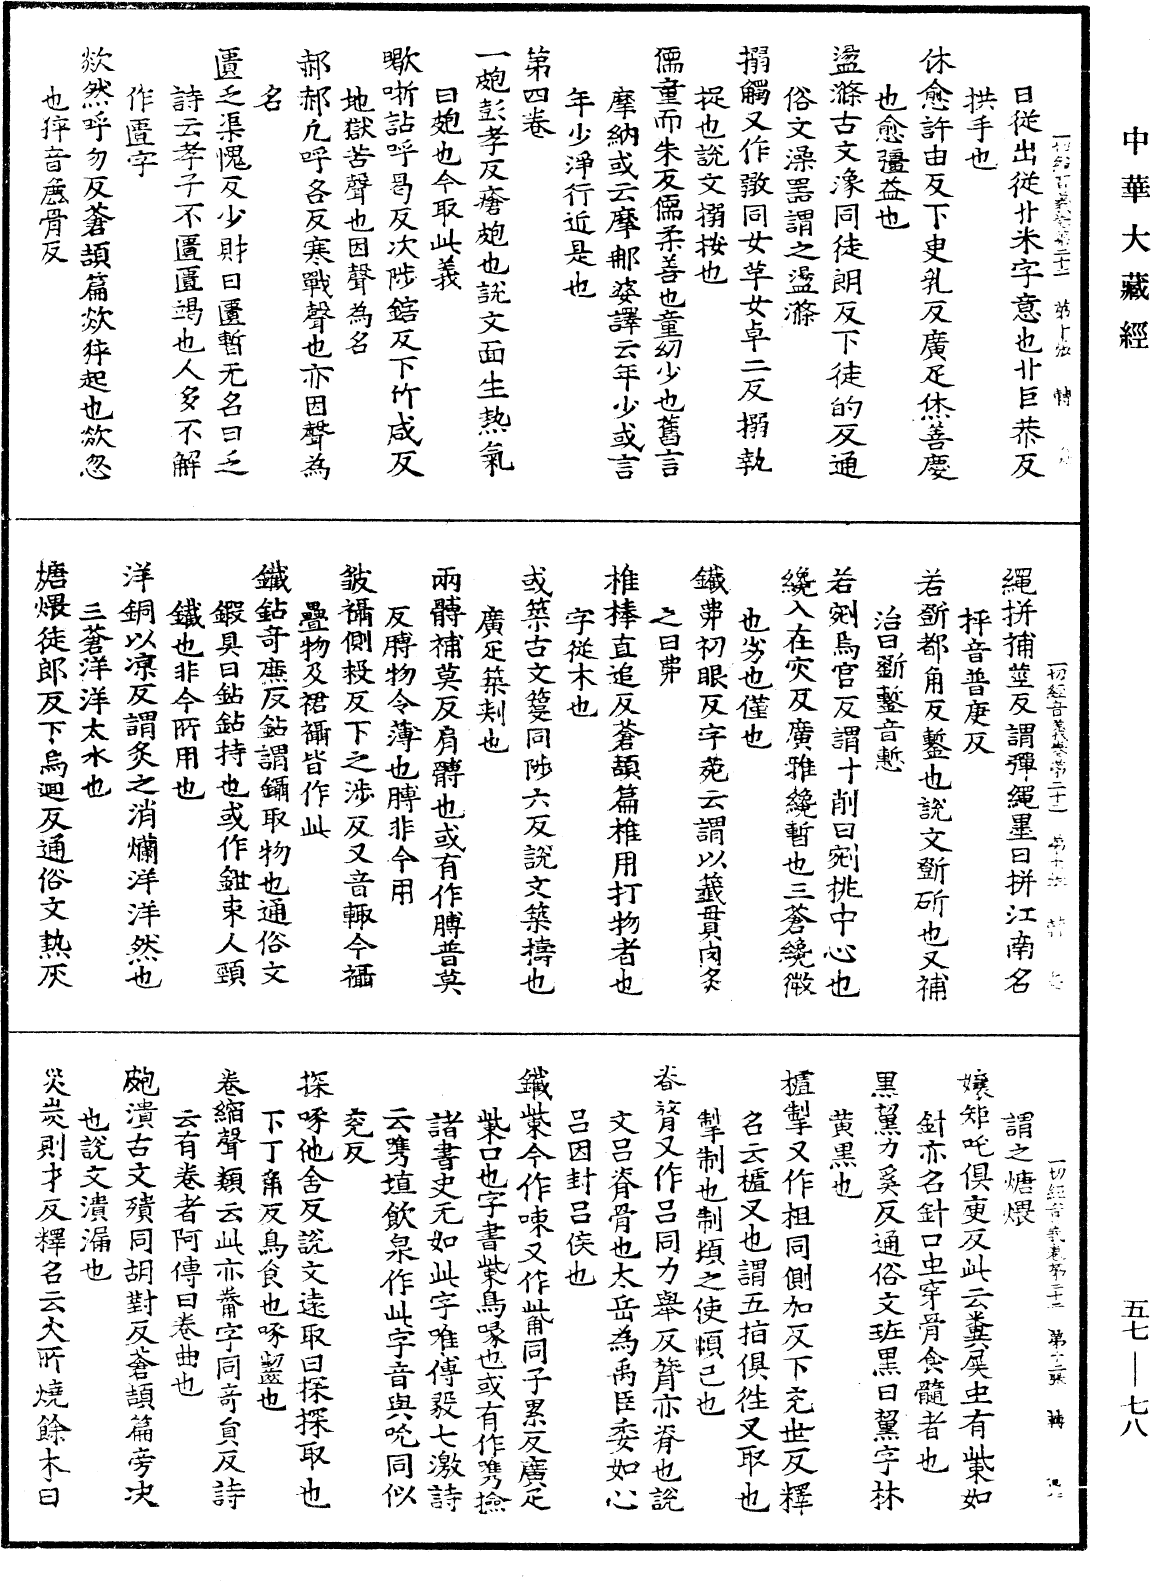 中華大藏經
五七—七八
日從出從廾米字意也廾巨恭反
拱手也
休愈許由反下臾乳反廣疋烋善慶
也愈彊益也
盪滌古文潒同徒朗反下徒的反通
俗文澡器謂之盪滌
搦觸又作敠同女草女卓二反搦執
捉也說文搦按也
儒童而朱反儒柔善也童幼少也舊言
摩納或云摩那婆譯云年少或言
年少淨行近是也
第四卷
一皰彭孝反瘡皰也說文面生熱氣
曰皰也今取此義
嚱哳詀呼曷反次陟鎋反下竹咸反
地獄苦聲也因聲為名
郝郝凡呼各反寒戰聲也亦因聲為
名
匱乏渠愧反少財曰匱暫无名曰乏
詩云孝子不匱匱竭也人多不解
作匱字
欻然呼勿反蒼頡篇欻猝起也欻忽
也猝音麁骨反
一切經音義卷第二十二 第十一張
繩拼補莖反謂彈繩墨曰拼江南名
抨音普庚反
若斲都角反鑿也說文斲斫也又補
治曰斲鏨音慙
若剜烏官反謂十削曰剜挑中心也
纔入在灾反廣雅纔暫也三蒼纔微
也劣也僅也
鐵弗初眼反字苑云謂以籤貫肉炙
之曰弗
椎棒直追反蒼頡篇椎用打物者也
字從木也
或築古文𥳑同陟六反說文築擣也
廣疋築刺也
兩髆補莫反肩髆也或有作膊普莫
反膊物令薄也膊非今用
皺襵側殺反下之涉反又音輙今襵
疊物及裙襵皆作此
鐵鉆奇廉反鉆謂鑷取物也通俗文
鍜具曰鉆鉆持也或作鉗束人頸
鐵也非今所用也
洋銅以凉反謂炙之消爛洋洋然也
三蒼洋洋大水也
煻煨徒郎反下烏迴反通俗文熱灰
一切經音義卷第二十二 第十二張
謂之煻煨
孃矩吒俱臾反此云糞屎虫有㭰如
針亦名針口虫穿骨食髓者也
黑黧力奚反通俗文班黑曰黧字林
黃黑也
摣掣又作柤同側加反下充世反釋
名云摣叉也謂五指俱徃叉取也
掣制也制頓之使順己也
脊膂又作呂同力舉反膂亦脊也說
文呂脊骨也太岳為禹臣委如心
呂因封呂侯也
鐵㭰今作㖩又作觜同子累反廣疋
㭰口也字書㭰鳥喙也或有作㗱撿
諸書史无如此字唯傅毅七激詩
云㗱埴飲泉作此字音與吮同似
兖反
探啄他含反說文遠取曰探探取也
下丁角反鳥食也啄齧也
卷縮聲類云此亦觠字同奇員反詩
云有卷者阿傳曰卷曲也
皰潰古文殨同胡對反蒼頡篇旁决
也說文潰漏也
災炭則才反釋名云火所燒餘木曰